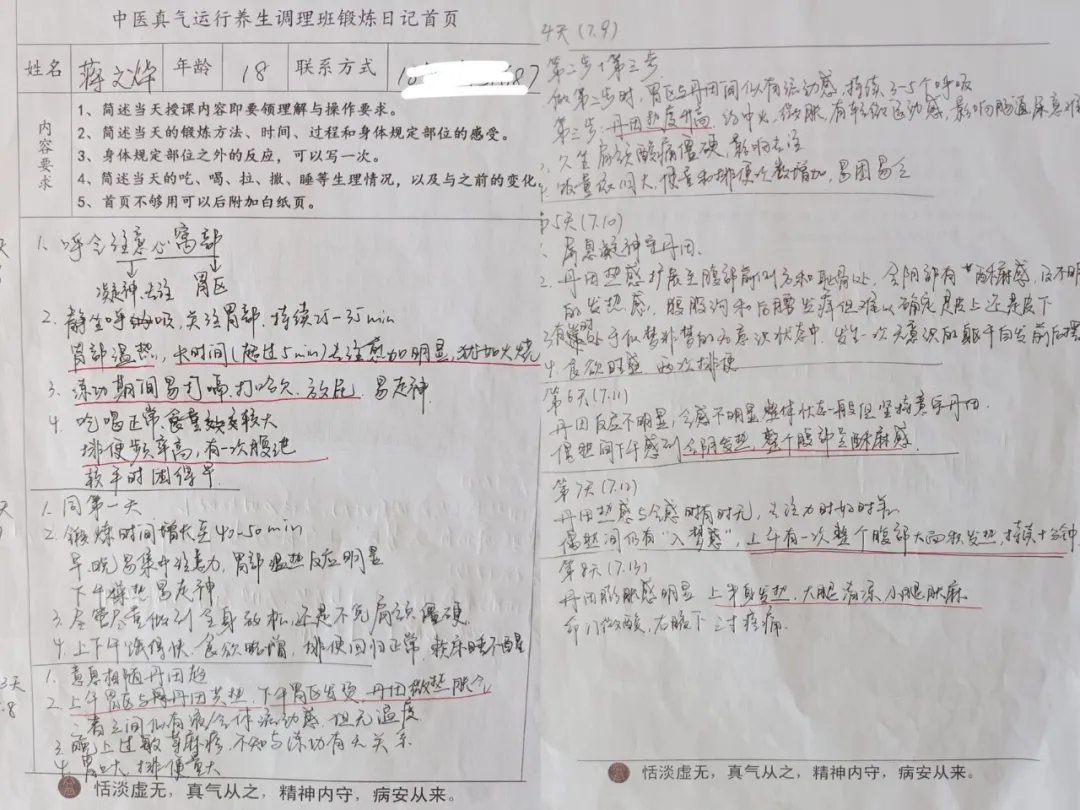 中医真气运行养生调理班锻炼日记首页
姓名 蒋文烨 年龄 18 联系方式
内容要求
1、简述当天授课内容即要领理解与操作要求。
2、简述当天的锻炼方法、时间、过程和身体规定部位的感受。
3、身体规定部位之外的反应，可以写一次。
4、简述当天的吃、喝、拉、撒、睡等生理情况，以及与之前的变化
5、首页不够用可以后附加白纸页。
1. 呼会注意心窝部
凝神关注 胃区
2. 静坐呼吸，关注胃部，持续25-35min
胃部温热，长时间(超过5min)关注愈加明显，犹如火烧
3. 练功期间易打嗝、打哈欠、放屁，易走神
4. 吃喝正常，较大
排便频率高，有一次腹泄
较平时困得早
1. 同第一天
2. 锻炼时间增长至40-50min
早、晚易集中注意力，胃部温热反应明显
下午燥热易走神
3. 尽管尽量做到全身放松，还是不免肩颈僵硬
4. 上下午饿得快，食欲略增，排便回归正常，
3天
.8
1. 意息相随丹田趋
2. 上午胃区与丹田共热，下午胃区发烫，丹田微热
二者之间似有液/气体流动感，但无温度
3. 晚上过敏荨麻疹，不知与练功有无关系
4. 胃口大，排便量大
恬淡虚无，真气从之，精神内守，病安从来。
4天(7.9)
第二步+第三步
做第二步时，胃区与丹田间似有流动感，持续3-5个呼吸
第三步：丹田热度升高，有轻微运动感，影响肠道尿意
久坐肩颈酸痛僵硬，影响关注
饭量依旧大，便量和排便次数增加，易困易乏
第5天(7.10)
1. 息凝神守丹田.
2. 丹田热感扩展至腹部前侧方和耻骨处，会阴部有
的发热感，腹股沟和后腰发痒但难以确定是皮上还是皮下
3. 处于似梦非梦的无意识状态中，发生一次无意识的躯干自发前后
4. 食欲旺盛，两次排便
第6天(7.11)
丹田反应不明显，会感不明显，整体状态一般但坚持意守丹田.
偶然间下午感到会阴发热，整个腹部呈酥麻感.
第7天(7.12)
丹田热感与会感时有时无，关注力时好时差
偶然间仍有“入梦感”，上午有一次整个腹部大面积发热，持续十分钟
第8天(7.13)
丹田膨胀感明显 上半身发热，大腿清凉 小腿胀麻
命门微酸，右腋下三寸疼痛.
恬淡虚无，真气从之，精神内守，病安从来。